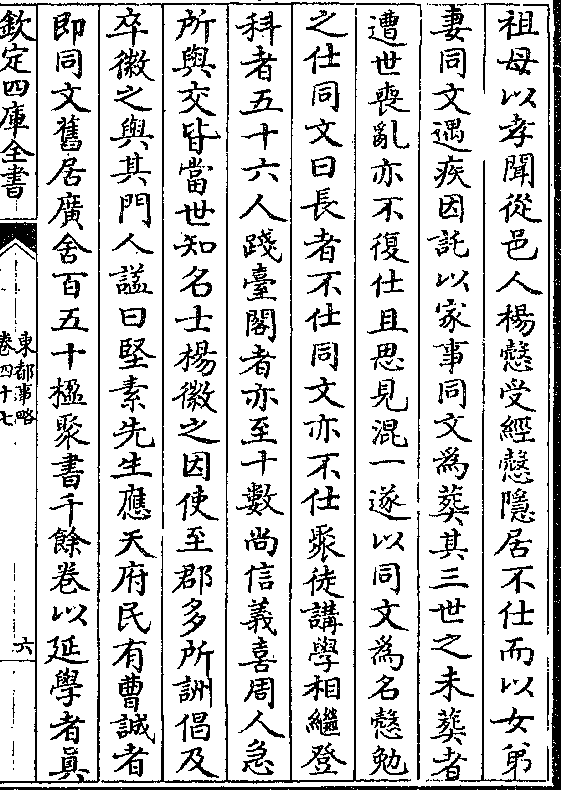 祖母以孝聞從邑人楊慤受經慤隱居不仕而以女弟
妻同文遇疾因託以家事同文為葬其三世之未葬者
遭世喪亂亦不復仕且思見混一遂以同文為名慤勉
之仕同文曰長者不仕同文亦不仕聚徒講學相繼登
科者五十六人踐臺閣者亦至十數尚信義喜周人急
所與交皆當世知名士楊徽之因使至郡多所詶倡及
卒徽之與其門人諡曰堅素先生應天府民有曹誠者
即同文舊居廣舍百五十楹聚書千餘卷以延學者真
欽定四庫全書
東都事略
卷四十七
六